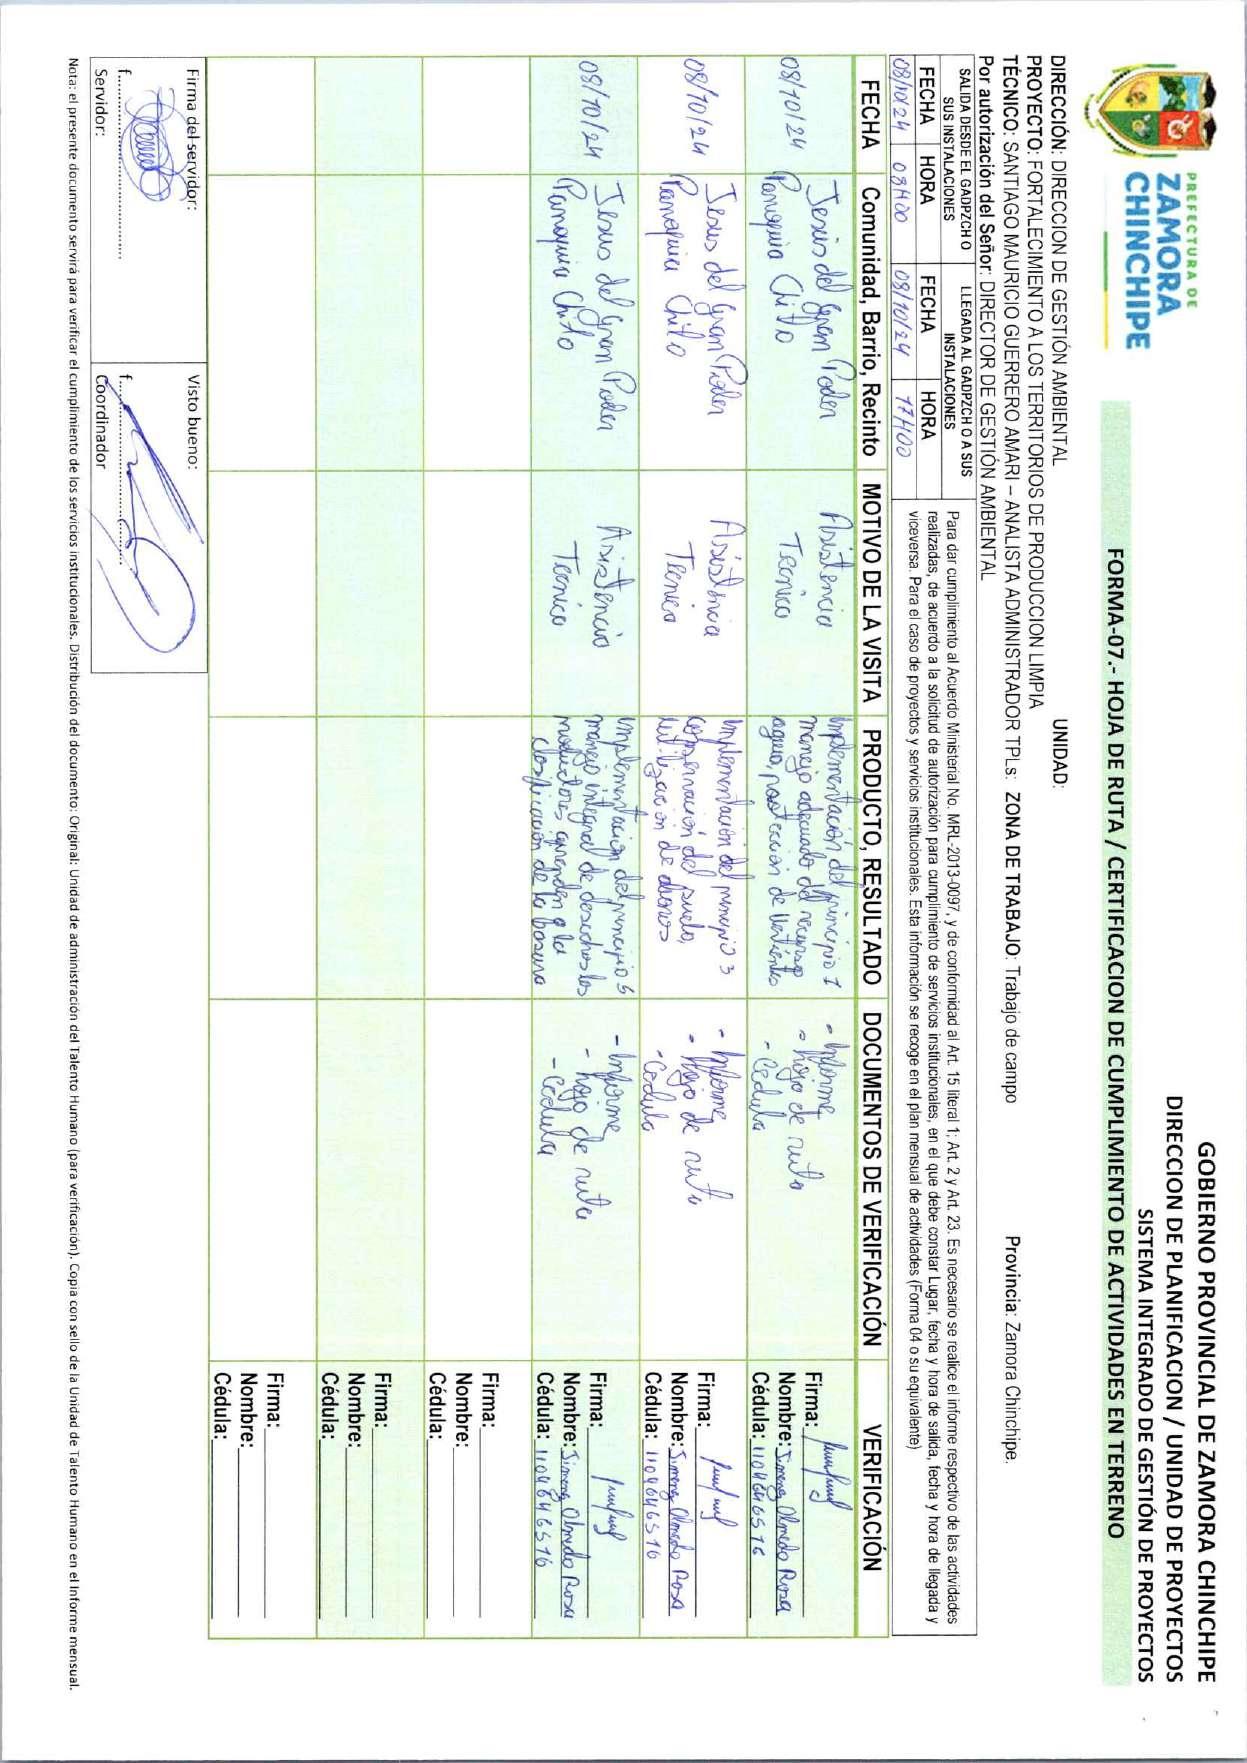 PREFECTURA DE
ZAMORA
CHINCHIPE
GOBIERNO PROVINCIAL DE ZAMORA CHINCHIPE
DIRECCION DE PLANIFICACION / UNIDAD DE PROYECTOS
SISTEMA INTEGRADO DE GESTIÓN DE PROYECTOS
FORMA-07.- HOJA DE RUTA / CERTIFICACION DE CUMPLIMIENTO DE ACTIVIDADES EN TERRENO
DIRECCIÓN: DIRECCION DE GESTIÓN AMBIENTAL UNIDAD:
PROYECTO: FORTALECIMIENTO A LOS TERRITORIOS DE PRODUCCION LIMPIA
TÉCNICO: SANTIAGO MAURICIO GUERRERO AMARI – ANALISTA ADMINISTRADOR TPLs: ZONA DE TRABAJO: Trabajo de campo Provincia: Zamora Chinchipe.
Por autorización del Señor: DIRECTOR DE GESTIÓN AMBIENTAL
SALIDA DESDE EL GADPZCH O SUS INSTALACIONES
LLEGADA AL GADPZCH O A SUS INSTALACIONES
FECHA HORA FECHA HORA
08/10/24 08H00 08/10/24 17H00
Para dar cumplimiento al Acuerdo Ministerial No. MRL-2013-0097, y de conformidad al Art. 15 literal 1; Art. 2 y Art. 23. Es necesario se realice el informe respectivo de las actividades
realizadas, de acuerdo a la solicitud de autorización para cumplimiento de servicios institucionales, en el que debe constar Lugar, fecha y hora de salida, fecha y hora de llegada y
viceversa. Para el caso de proyectos y servicios institucionales. Esta información se recoge en el plan mensual de actividades (Forma 04 o su equivalente)
FECHA Comunidad, Barrio, Recinto MOTIVO DE LA VISITA PRODUCTO, RESULTADO DOCUMENTOS DE VERIFICACIÓN VERIFICACIÓN
08/10/24
Jesús del Gran Poder
Parroquia Chito
Asistencia
Tecnica
Implementación del principio 1
manejo adecuado del recurso
agua, proteccion de vertientes
- Informe
- hoja de ruta
- Cedula
Firma:
Nombre: Jimena Olmedo Rosa
Cédula: 1104646516
08/10/24
Jesus del Gran Poder
Parroquia Chito
Asistencia
Tecnica
Implementación del principio 3
conservación del suelo,
utilización de abonos
- Informe
- Hoja de ruta
- Cedula
Firma:
Nombre: Jimena Olmedo Rosa
Cédula: 1104646516
08/10/24
Jesus del Gran Poder
Parroquia Chito
Asistencia
Tecnica
Implementacion del principio 6
manejo integral de desechos los
productores aprenden a la
clasificacion de la basura
- Informe
- hoja de ruta
- Cedula
Firma:
Nombre: Jimena Olmedo Rosa
Cédula: 1104646516
Firma:
Nombre:
Cédula:
Firma:
Nombre:
Cédula:
Firma:
Nombre:
Cédula:
Firma del servidor:
f.
Servidor:
Visto bueno:
f.
Coordinador
Nota: el presente documento servirá para verificar el cumplimiento de los servicios institucionales. Distribución del documento: Original: Unidad de administración del Talento Humano (para verificación). Copia con sello de la Unidad de Talento Humano en el Informe mensual.